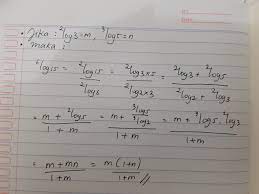 • Jika : ²log3 = m, ³log5 = n
• maka :
⁶log15 = ²log15 / ²log6 = ²log3×5 / ²log2×3 = ²log3 + ²log5 / ²log2 + ²log3
= m + ²log5 / 1+m = m + ³log5/³log2 / 1+m = m + ³log5 · ²log3 / 1+m
= m + mn / 1+m = m(1+n) / 1+m //